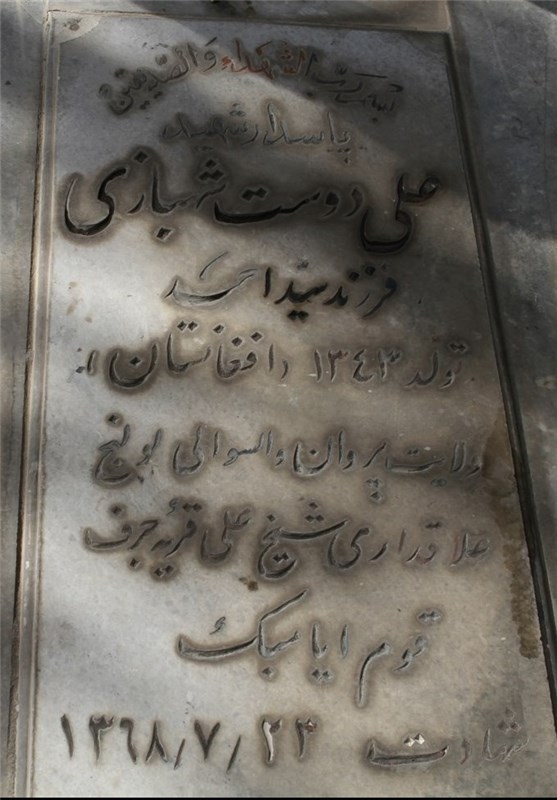 بسم رب الشهداء والصدیقین
پاسدار شهید
علی دوست شهبازی
فرزند سید احمد
تولد ۱۳۴۳ (افغانستان)
ولایت پروان والسوالی لولنج
علاقداری شیخ علی قریه جرف
قوم ایاسبک
شهادت ۱۳۶۸/۷/۲۳